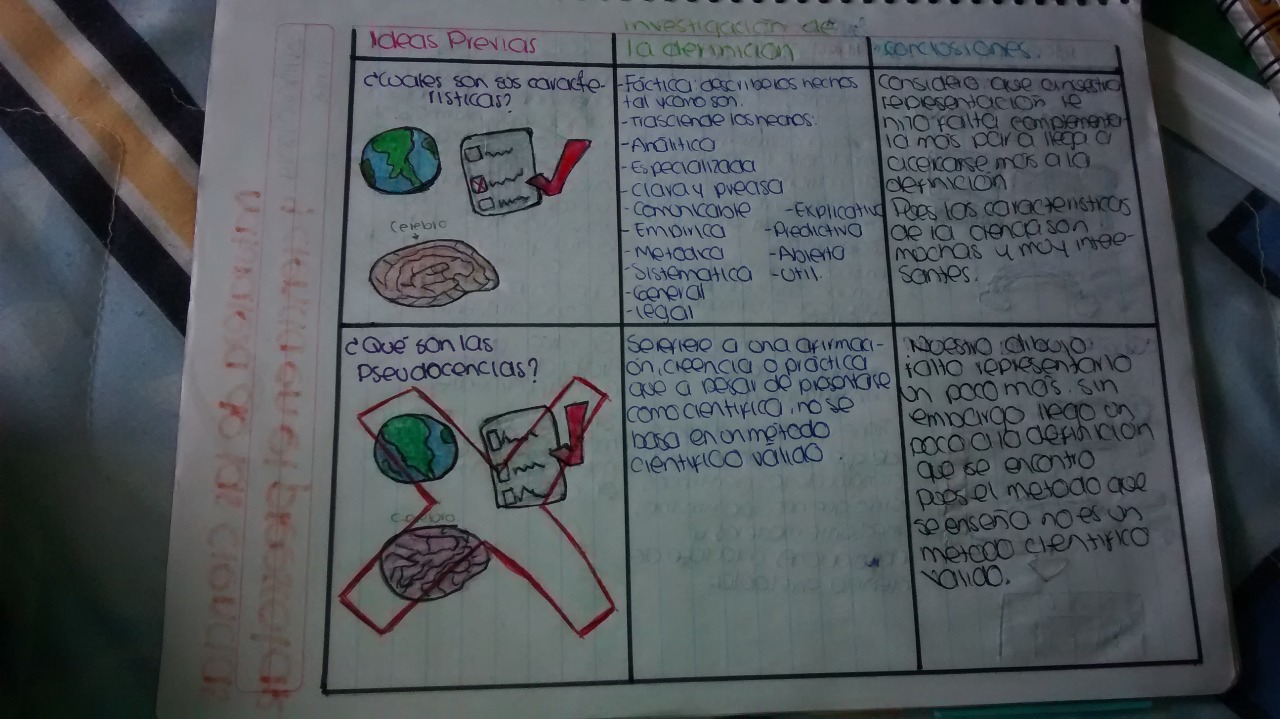 Ideas Previas
Investigación de:
la definición
conclusiones.
¿Cuales son sus caracte-
risticas?
Cerebro
-Fáctica: describe los hechos
tal y como son.
-Trasciende los hechos.
-Analítica
-Especializada
-Clara y precisa
-Comunicable -Explicativa
-Empírica -Predictiva
-Metódica -Abierta
-Sistemática -Útil.
-General
-Legal
Considero que a nuestra
representación le
hizo falta complementar
la mas para llega a
acercarse más a la
definición
Pues las características
de la ciencia son
muchas y muy inte-
santes.
¿Qué son las
Pseudocencias?
Cerebro
Se refiere a una afirmaci-
ón, creencia o práctica
que a pesar de presentarse
como científico, no se
basa en un método
científico válido.
Nuestro dibujo,
falto representarlo
un poco mas, sin
embargo llego un
poco a la definición
que se encontro
pues el metodo que
se enseña no es un
metodo científico
valido.